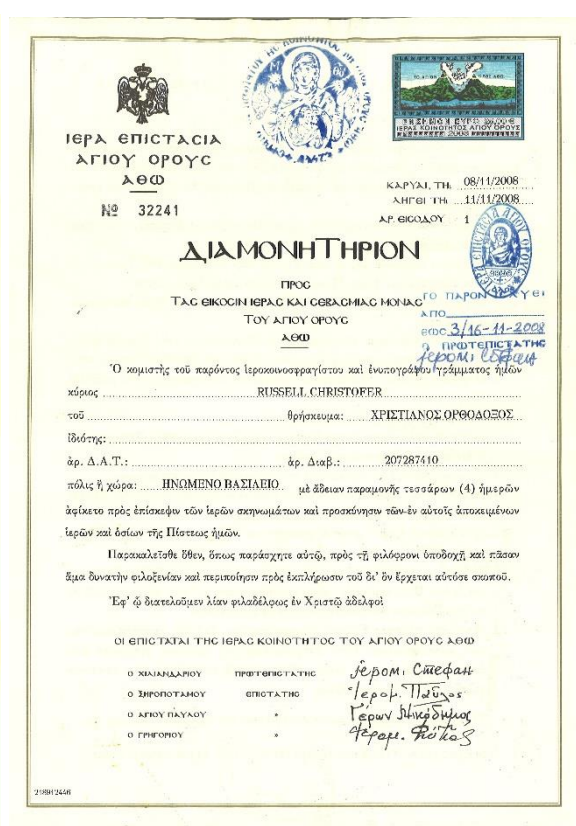 ΙΕΡΑ ΕΠΙCΤΑCΙΑ
ΑΓΙΟΥ ΟΡΟΥC
ΑΘΩ
Nº 32241
ΙΕΡΑΣ ΚΟΙΝΟΤΗΤΟΣ ΑΓΙΟΥ ΟΡΟΥΣ
2008
ΚΑΡΥΑΙ, ΤΗ, 08/11/2008
ΛΗΓΕΙ ΤΗ, 11/11/2008
ΑΡ. ΕΙCΟΔΟΥ 1
ΙΕΡΑ ΕΠΙΣΤΑΣΙΑ ΑΓΙΟΥ ΟΡΟΥΣ
ΔΙΑΜΟΝΗΤΗΡΙΟΝ
ΠΡΟC
ΤΑC ΕΙΚΟCΙΝ ΙΕΡΑC ΚΑΙ CΕΒΑCΜΙΑC ΜΟΝΑC
ΤΟΥ ΑΓΙΟΥ ΟΡΟΥC
ΑΘΩ
ΤΟ ΠΑΡΟΝ ΙCΧΥΕΙ
ΑΠΟ
ΕΩC 3/16-11-2008
Ο ΠΡΩΤΕΠΙCΤΑΤΗC
Ὁ κομιστὴς τοῦ παρόντος ἱεροκοινοσφραγίστου καὶ ἐνυπογράφου γράμματος ἡμῶν
κύριος RUSSELL CHRISTOFER
τοῦ θρήσκευμα: ΧΡΙΣΤΙΑΝΟΣ ΟΡΘΟΔΟΞΟΣ
ἰδιότης:
ἀρ. Δ.Α.Τ.: ἀρ. Διαβ.: 207287410
πόλις ἢ χώρα: ΗΝΩΜΕΝΟ ΒΑΣΙΛΕΙΟ μὲ ἄδειαν παραμονῆς τεσσάρων (4) ἡμερῶν
ἀφίκετο πρὸς ἐπίσκεψιν τῶν ἱερῶν σκηνωμάτων καὶ προσκύνησιν τῶν ἐν αὐτοῖς ἀποκειμένων
ἱερῶν καὶ ὁσίων τῆς Πίστεως ἡμῶν.
Παρακαλεῖσθε ὅθεν, ὅπως παράσχητε αὐτῷ, πρὸς τῇ φιλόφρονι ὑποδοχῇ καὶ πᾶσαν
ἅμα δυνατὴν φιλοξενίαν καὶ περιποίησιν πρὸς ἐκπλήρωσιν τοῦ δι' ὃν ἔρχεται αὐτόσε σκοποῦ.
Ἐφ' ᾧ διατελοῦμεν λίαν φιλαδέλφως ἐν Χριστῷ ἀδελφοὶ
ΟΙ ΕΠΙCΤΑΤΑΙ ΤΗC ΙΕΡΑC ΚΟΙΝΟΤΗΤΟC ΤΟΥ ΑΓΙΟΥ ΟΡΟΥC ΑΘΩ
Ο ΧΙΛΙΑΝΔΑΡΙΟΥ ΠΡΩΤΕΠΙCΤΑΤΗC Јером. Стефан
Ο ΞΗΡΟΠΟΤΑΜΟΥ ΕΠΙCΤΑΤΗC Ἱερομ. Παῦλος
Ο ΑΓΙΟΥ ΠΑΥΛΟΥ " Γέρων Νικόδημος
Ο ΓΡΗΓΟΡΙΟΥ " Ἱερομ.
218912446